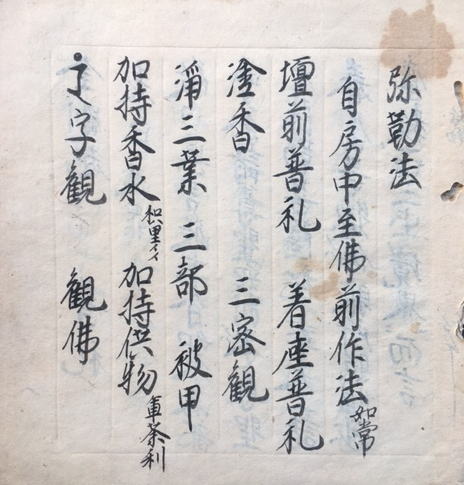 弥勒法
自房中至佛前作法如常
壇前普礼 着座普礼
塗香 三密観
浄三業 三部 被甲
加持香水枳里々々 加持供物軍荼利
字観 観佛